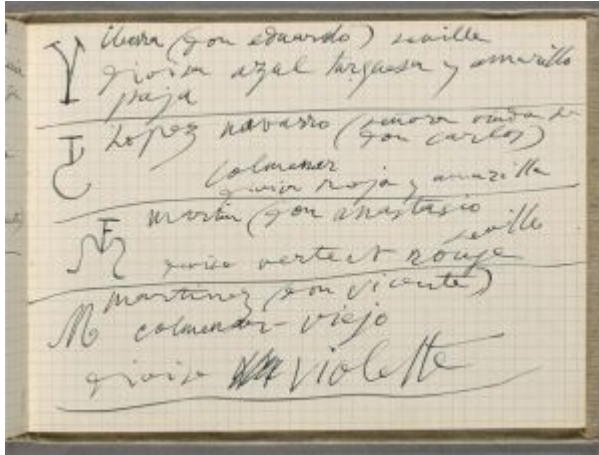 Ibara (don eduardo) seville
divisa azul turquesa y amarillo
paja
Lopez navarro (senora viuda de
don carlos)
Colmenar
divisa roja y amarilla
martin (don anastasio
seville
divisa vert et rouge
martinez (don vicente)
M colmenar-viejo
divisa violette